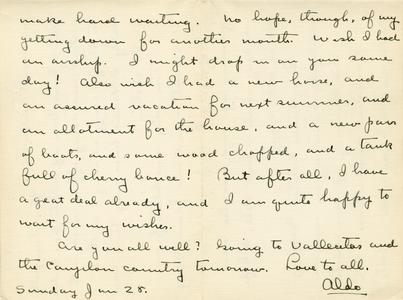 make hard waiting. No hope, though, of my
getting down for another month. Wish I had
an airship. I might drop in on you some
day! Also wish I had a new horse, and
an assured vacation for next summer, and
an allotment for the house, and a new pair
of boots, and some wood chopped, and a tank
full of cherry bounce! But after all, I have
a great deal already, and I am quite happy to
wait for my wishes.
Are you all well? Going to Vallecitos and
the Canjilon country tomorrow. Love to all.
Aldo
Sunday Jan 28.